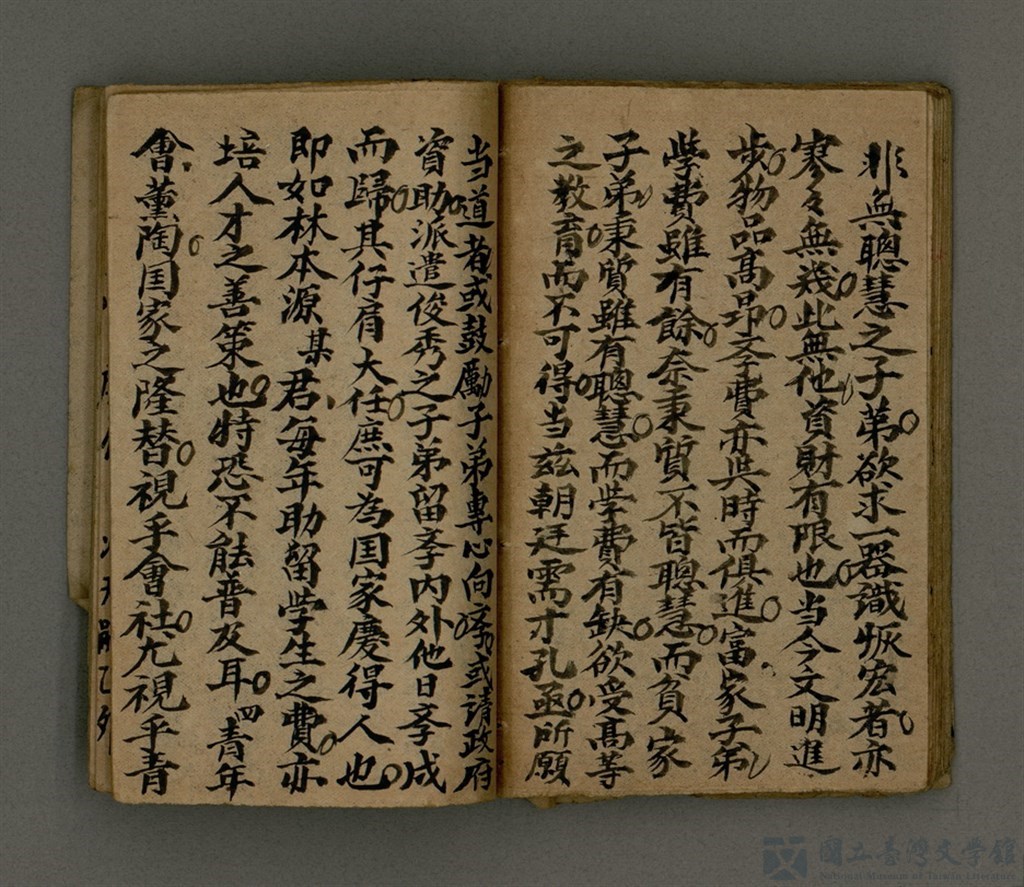 非無聰慧之子弟。欲求一器識恢宏者、亦
寥々無幾。此無他、資財有限也。当今文明進
步。物品高昂。斈費亦與時而俱進。富家子弟、
學費雖有餘。奈秉質不皆聰慧。而貧家
子弟、秉質雖有聰慧。而学費有缺。欲受高等
之教育。而不可得。当玆朝廷需才孔亟。所願
当道者或鼓勵子弟專心向斈。或請政府
資助。派遣俊秀之子弟留斈內外他日斈成
而歸。其仔肩大任。庶可為国家慶得人也。
即如林本源某君、每年助留学生之費。亦
培人才之善策也。特恐不能普及耳。四青年
會、薰陶。国家之隆替。視乎會社。尤視乎青
國立臺灣文學館
National Museum of Taiwan Literature